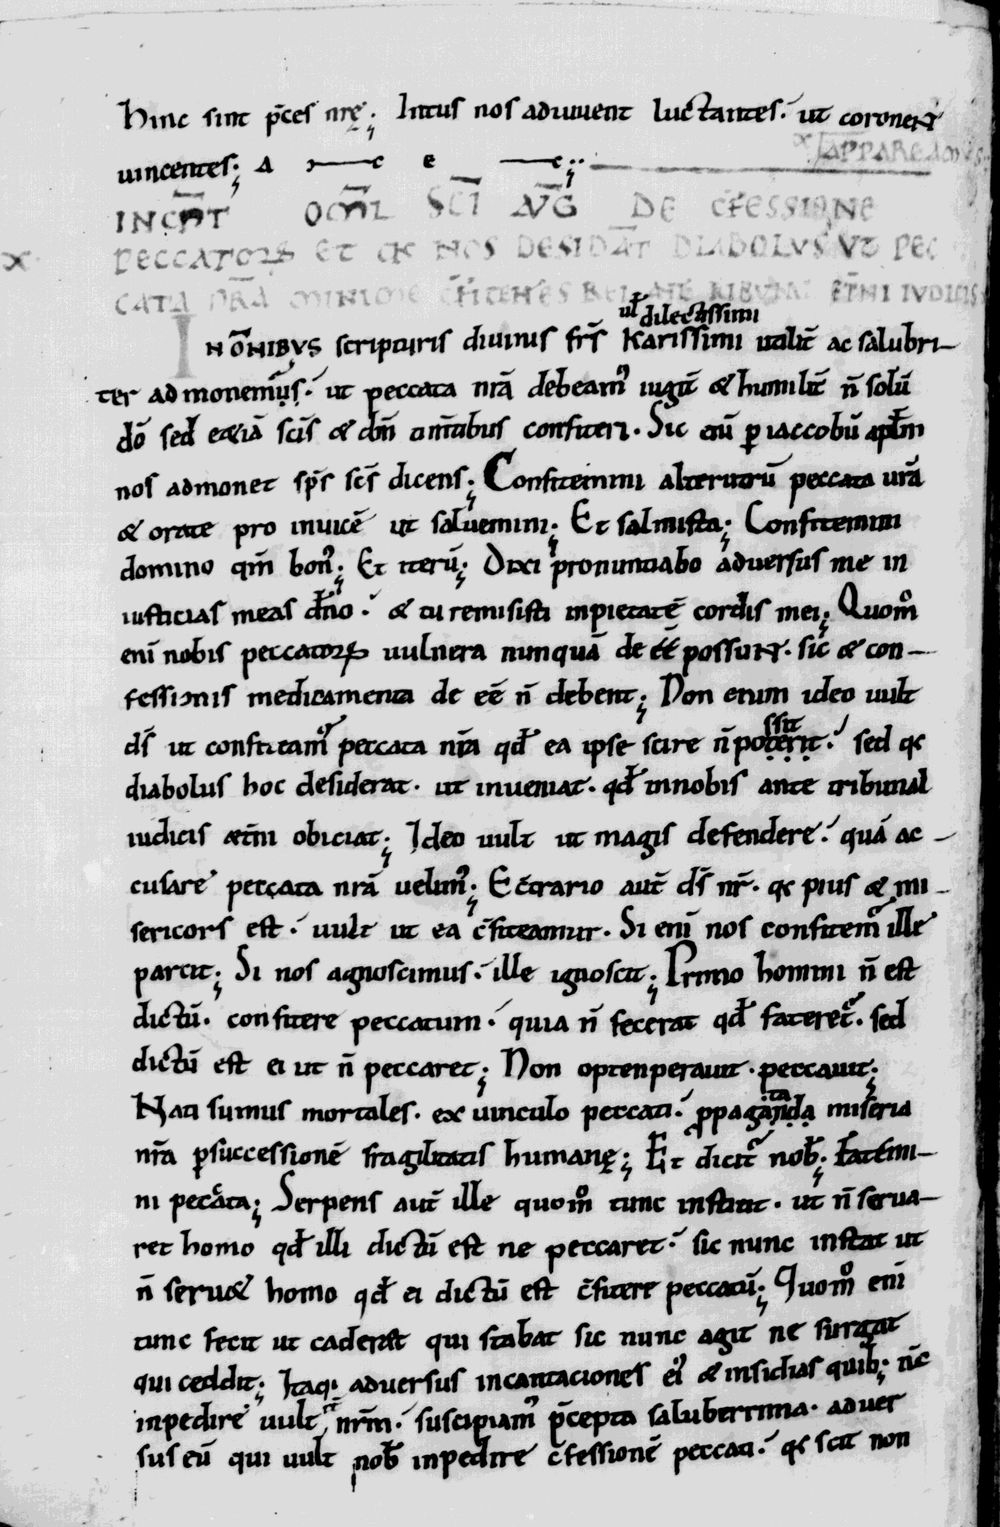 Hinc sint p̄ces nr̄ę; Intus nos adiuuent luctantes. ut coronent᷑
uincentes; A e
INCPIT OML̄ SC̄I AVG DE C̄FESSIONE
PECCATORꝜ ET QR NOS DESIDAT DIABOLVS VT PEC
CATA NR̄A MINIME C̄FITENTES
uł dilectissimi
IN OM̄NIBVS scripturis diuinis fr̄s karissimi utilit̄ ac salubri-
ter admonemus. ut peccata nrā debeam᾽ iugit̄ & humilit̄ n̄ solū
dō sed etiā scīs & dm̄ timtibus confiteri. Sic enī p iaccobū apłm
nos admonet sp̄s sc̄s dicens; Confitemini alterutrū peccata urā
& orate pro inuicē ut saluemini; Et salmista; Confitemini
domino qm̄ bon᾽; Et iterū; Dixi pronuntiabo aduersus me in
iusticias meas dn̄o. & tu remisisti inpietatē cordis mei; Quom̊
enī nobis peccatorꝝ uulnera nunquā de eē possunt᷑. sic & con-
fessionis medicamenta de eē n̄ debent; Non enim ideo uult
ds̄ ut confiteam᾽ peccata nr̄a qđ ea ipse scire n̄ poterit. sed qr
ssit
diabolus hoc desiderat. ut inueniat. qđ innobis ante tribunal
iudicis ætn̄i obiciat; Ideo uult ut magis defendere. quā ac-
cusare peccata nrā uelim᾽; E c̄trario aut̄ ds̄ nr̄. qr pius & mi-
sericors est. uult ut ea c̄fiteamur. Si enī nos confitem᾽ ille
parcit; Si nos agnoscimus. ille ignoscit; Primo homini n̄ est
dictū. confitere peccatum. quia n̄ fecerat qđ fateret᷑. sed
dictū est ei ut n̄ peccaret; Non optenperauit. peccauit;
Nati sumus mortales. ex uinculo peccati. ꝓpaganda miseria
ta
nr̄a p successionē fragilitatis humanę; Et dicit᷑ nob̄; fatemi-
ni peccata; Serpens aut̄ ille quom̊ tunc institit. ut n̄ serua-
ret homo qđ illi dictū est ne peccaret. sic nunc instat ut
n̄ seru& homo qđ ei dictū est c̄fitere peccatū; Quom̊ enī
tunc fecit ut caderet qui stabat sic nunc agit ne surgat
qui ceddit; Itaq; aduersus incantaciones ei᾽ & insidias quib; nc̄
inpedire uult nr̄m. suscipiam᾽ p̄cepta saluberrima. aduer
sus eū qui uult nob̄ inpedire c̄fessionē peccati. qr scit non